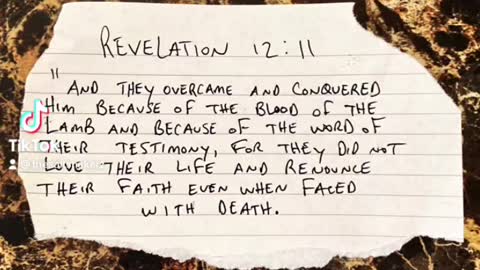 REVELATION 12:11
"AND THEY OVERCAME AND CONQUERED
HIM BECAUSE OF THE BLOOD OF THE
LAMB AND BECAUSE OF THE WORD OF
THEIR TESTIMONY, FOR THEY DID NOT
LOVE THEIR LIFE AND RENOUNCE
THEIR FAITH EVEN WHEN FACED
WITH DEATH.
TikTok